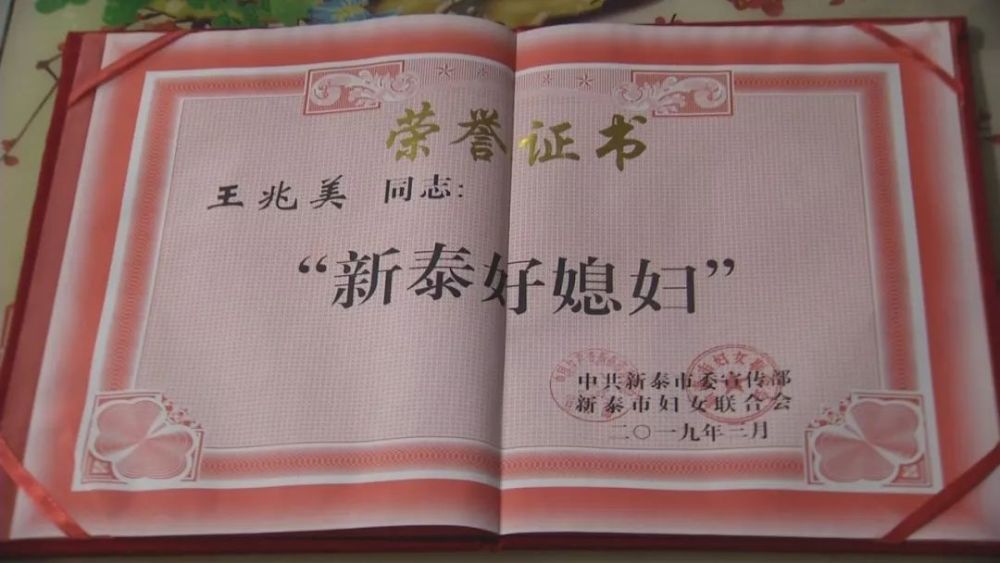 荣誉证书
王兆美 同志:
“新泰好媳妇”
中共新泰市委宣传部
新泰市妇女联合会
二〇一九年三月